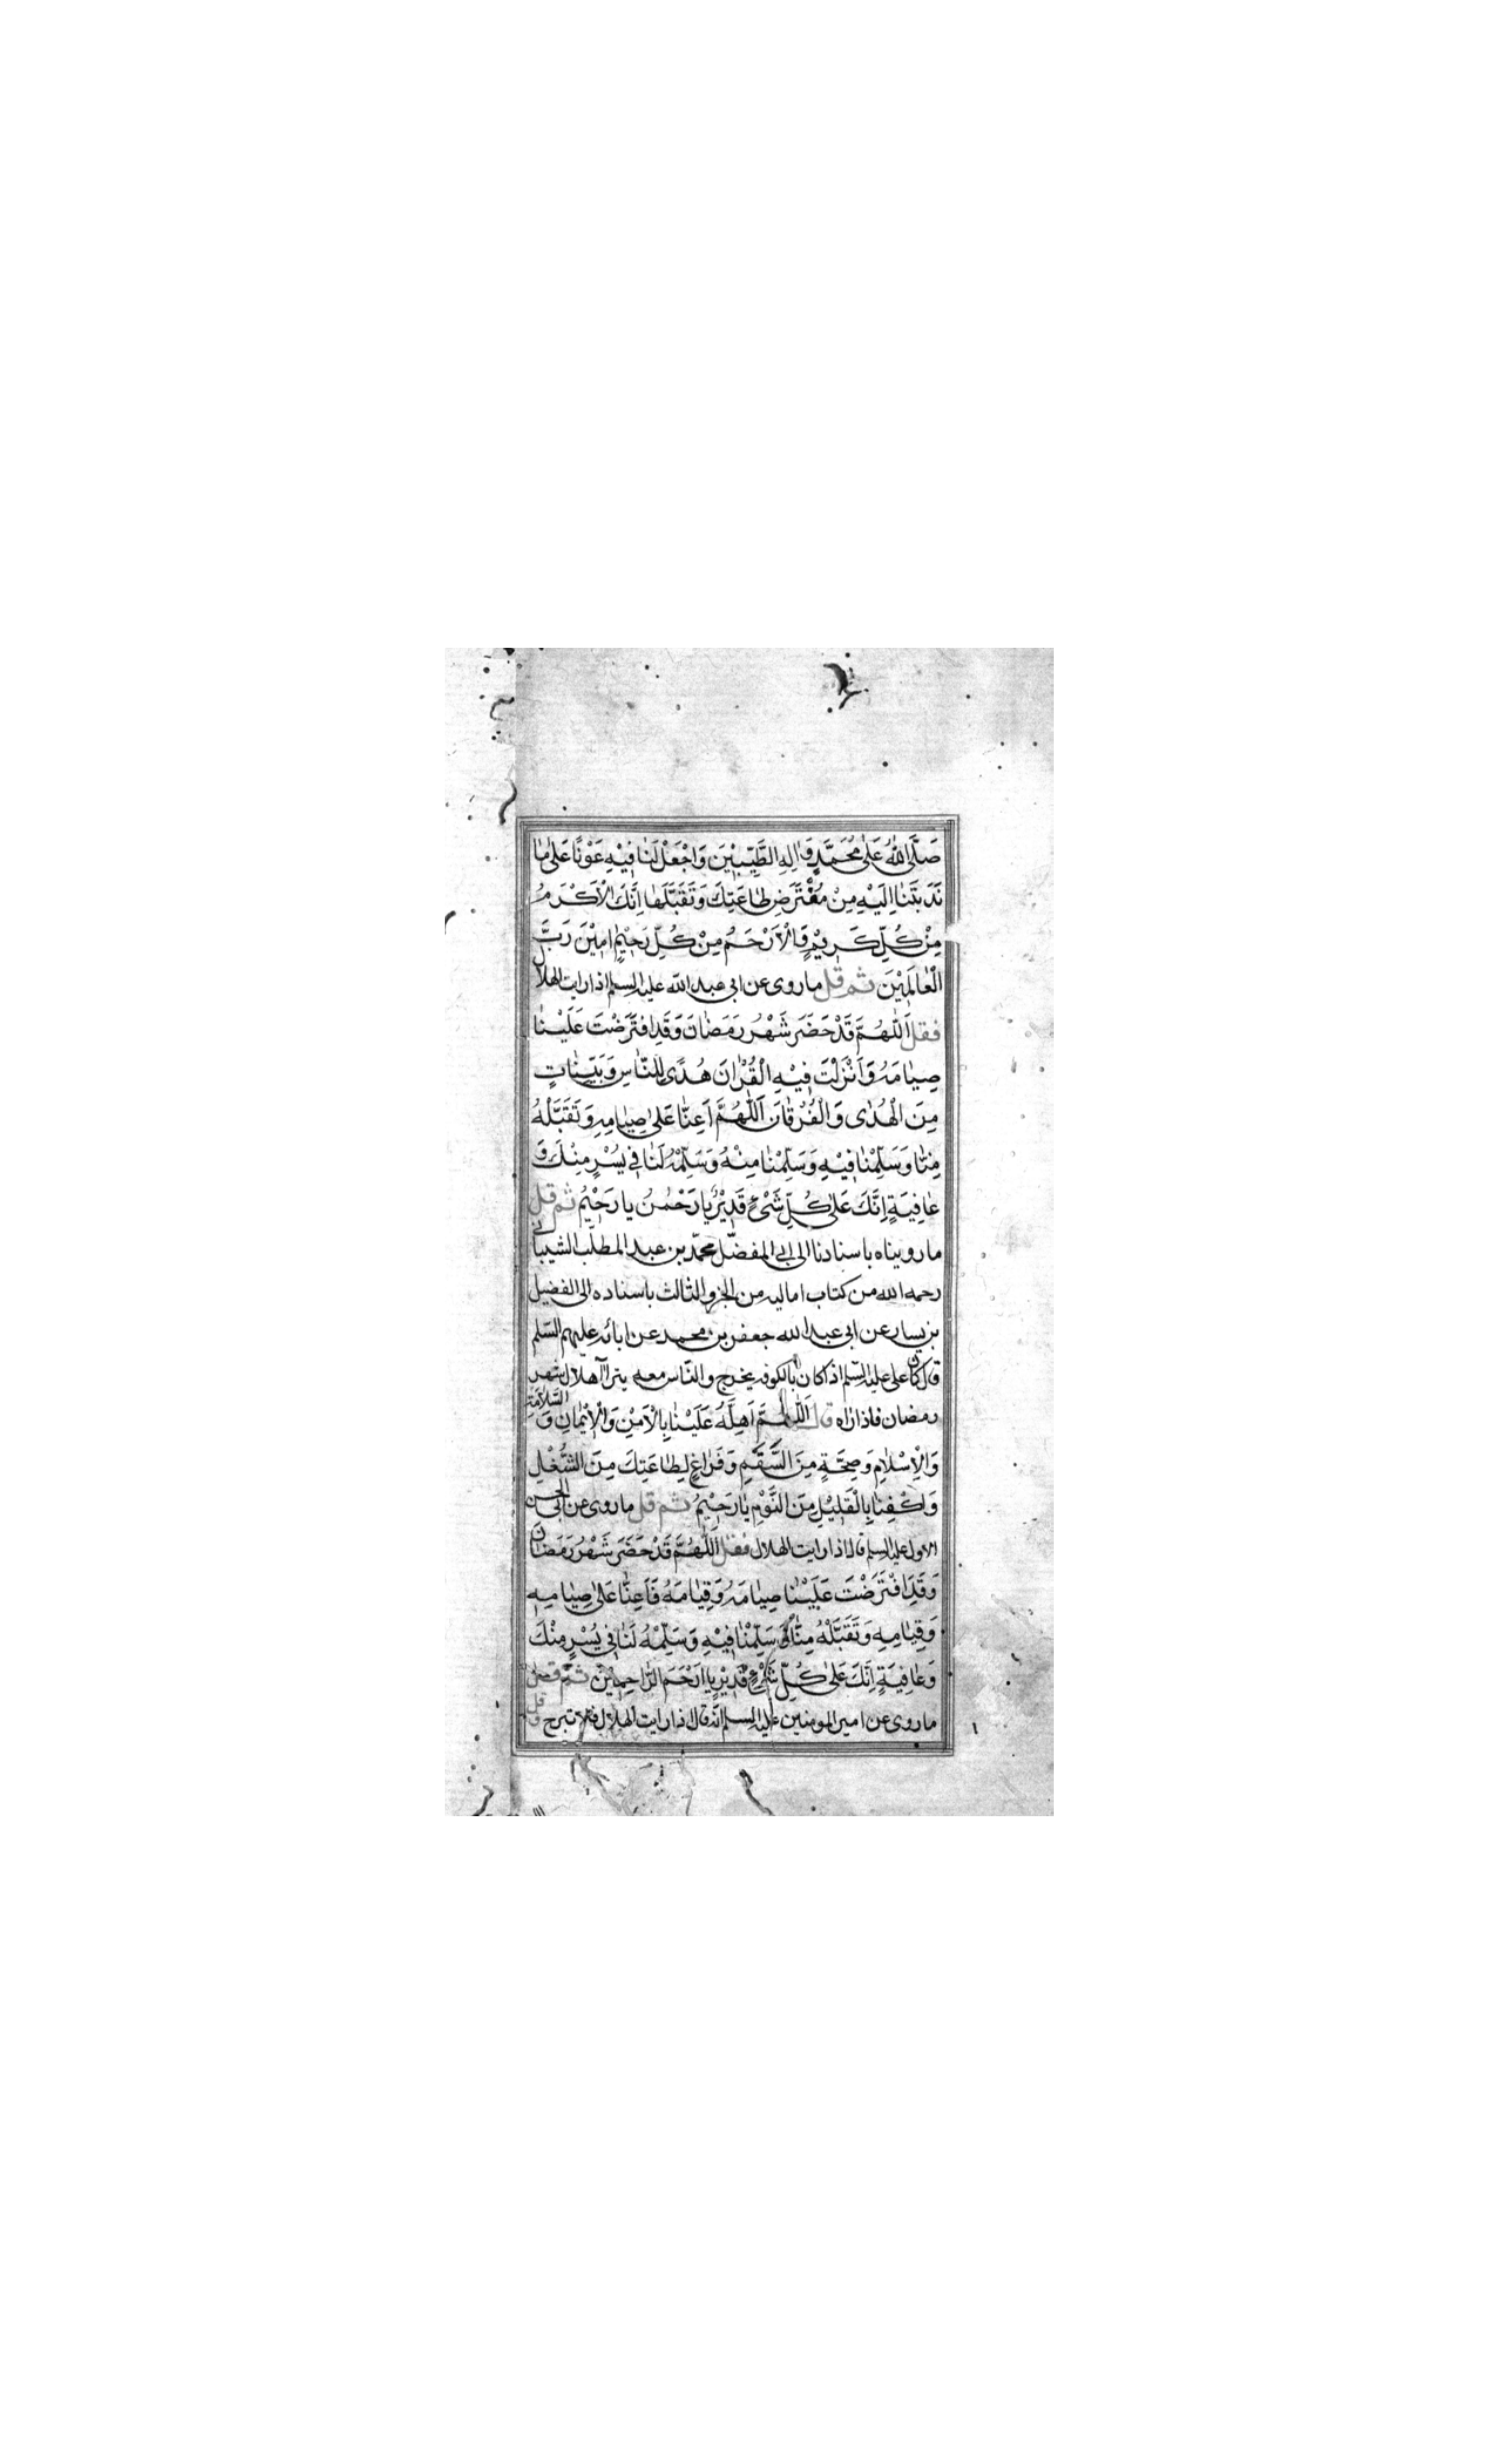 صَلَّى اللهُ عَلٰى مُحَمَّدٍ وَاٰلِهِ الطَّيِّبِيْنَ وَاجْعَلْ لَنَا فِيْهِ عَوْنًا عَلٰى مٰا
نَدَبْتَنٰا اِلَيْهِ مِنْ مُفْتَرَضِ طٰاعَتِكَ وَتَقَبَّلْهٰا اِنَّكَ الْاَكْرَمُ
مِنْ كُلِّ كَرِيْمٍ وَالْاَرْحَمُ مِنْ كُلِّ رَحِيْمٍ اٰمِيْنَ رَبَّ
الْعٰالَمِيْنَ ثم قل ما روى عن ابى عبد الله عليه السلم اذا رايت الهلال
فقل اَللّٰهُمَّ قَدْ حَضَرَ شَهْرُ رَمَضٰانَ وَقَدِ افْتَرَضْتَ عَلَيْنٰا
صِيٰامَهُ وَاَنْزَلْتَ فِيْهِ الْقُرْاٰنَ هُدًى لِلنّٰاسِ وَبَيِّنٰاتٍ
مِنَ الْهُدٰى وَالْفُرْقٰانَ اَللّٰهُمَّ اَعِنّٰا عَلٰى صِيٰامِهِ وَتَقَبَّلْهُ
مِنّٰا وَسَلِّمْنٰا فِيْهِ وَسَلِّمْنٰا مِنْهُ وَسَلِّمْهُ لَنٰا فِي يُسْرٍ مِنْكَ وَ
عٰافِيَةٍ اِنَّكَ عَلٰى كُلِّ شَىْءٍ قَدِيْرٌ يٰا رَحْمٰنُ يٰا رَحِيْمُ ثم قل
ما رويناه باسنادنا الى ابى المفضّل محمّد بن عبد المطلب الشيبانى
رحمه الله من كتاب اماليه من الجزو الثالث باسناده الى الفضيل
بن يسار عن ابى عبد الله جعفر بن محمد عن ابائه عليهم السّلم
قال كان على عليه السّلم اذا كان بالكوفه يخرج والنّاس معه يترا آ هلال شهر
رمضان فاذا راه قال اَللّٰهُمَّ اَهِلَّهُ عَلَيْنٰا بِالْاَمْنِ وَالْاِيْمٰانِ وَ السَّلٰامَةِ
وَالْاِسْلٰامِ وَصِحَّةٍ مِنَ السَّقَمِ وَفَرٰاغٍ لِطٰاعَتِكَ مِنَ الشُّغْلِ
وَاكْفِنٰا بِالْقَلِيْلِ مِنَ النَّوْمِ يٰا رَحِيْمُ ثم قل ما روى عن ابى الحسن
الاول عليه السلم قال اذا رايت الهلال فقل اَللّٰهُمَّ قَدْ حَضَرَ شَهْرُ رَمَضٰانَ
وَقَدِ افْتَرَضْتَ عَلَيْنٰا صِيٰامَهُ وَقِيٰامَهُ فَاَعِنّٰا عَلٰى صِيٰامِهِ
وَقِيٰامِهِ وَتَقَبَّلْهُ مِنّٰا وَسَلِّمْنٰا فِيْهِ وَسَلِّمْهُ لَنٰا فِي يُسْرٍ مِنْكَ
وَعٰافِيَةٍ اِنَّكَ عَلٰى كُلِّ شَىْءٍ قَدِيْرٌ يٰا اَرْحَمَ الرّٰاحِمِيْنَ ثم
ما روى عن امير المومنين عليه السلم انّه قال اذا رايت الهلال فلا تبرح و قل